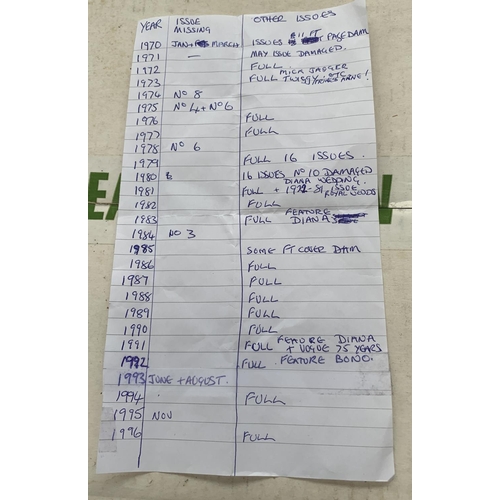 YEAR ISSUE MISSING OTHER ISSUES
1970 JAN + MARCH ISSUES ALL FT PAGE DAM
1971 — MAY ISSUE DAMAGED.
1972 FULL. MICK JAGGER
1973 FULL TWIGGY.
1974 No 8
1975 No 4 + No 6
1976 FULL
1977 FULL
1978 No 6
1979 FULL 16 ISSUES.
1980 16 ISSUES No 10 DAMAGED
1981 DIANA WEDDING. FULL + 1922-81 ISSUE ROYAL WEDDS
1982 FULL
1983 FULL FEATURE DIANA
1984 NO 3
1985 SOME FT COVER DAM
1986 FULL
1987 FULL
1988 FULL
1989 FULL
1990 FULL
1991 FULL FEATURE DIANA + VOGUE 75 YEARS
1992 FULL. FEATURE BONO.
1993 JUNE + AUGUST.
1994 FULL
1995 NOV
1996 FULL